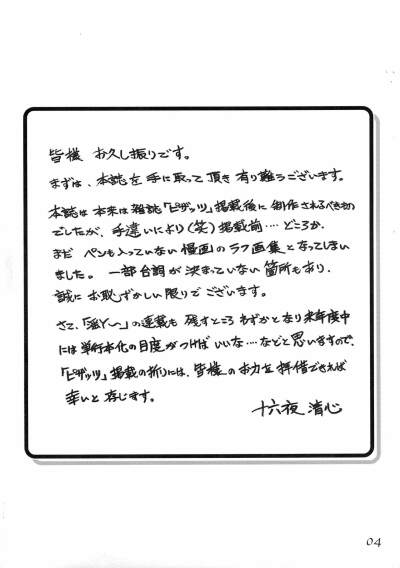 皆様 お久し振りです。
まずは、本誌を手に取って頂き有り難うございます。
本誌は本来は雑誌「ピザッツ」掲載後に制作されるべきもの
でしたが、手違いにより(笑)掲載前‥‥どころか、
まだ ペンも入っていない漫画のラフ画集となってしまい
ました。一部台詞が決まっていない箇所もあり、
誠にお恥ずかしい限りでございます。
さて、「淫〜」の連載も残すところ わずかとなり来年度中
には単行本化の目度がつけばいいな‥‥などと思いますので、
「ピザッツ」掲載の折りには、皆様のお力を拝借できれば
幸いと存じます。
十六夜 清心
04